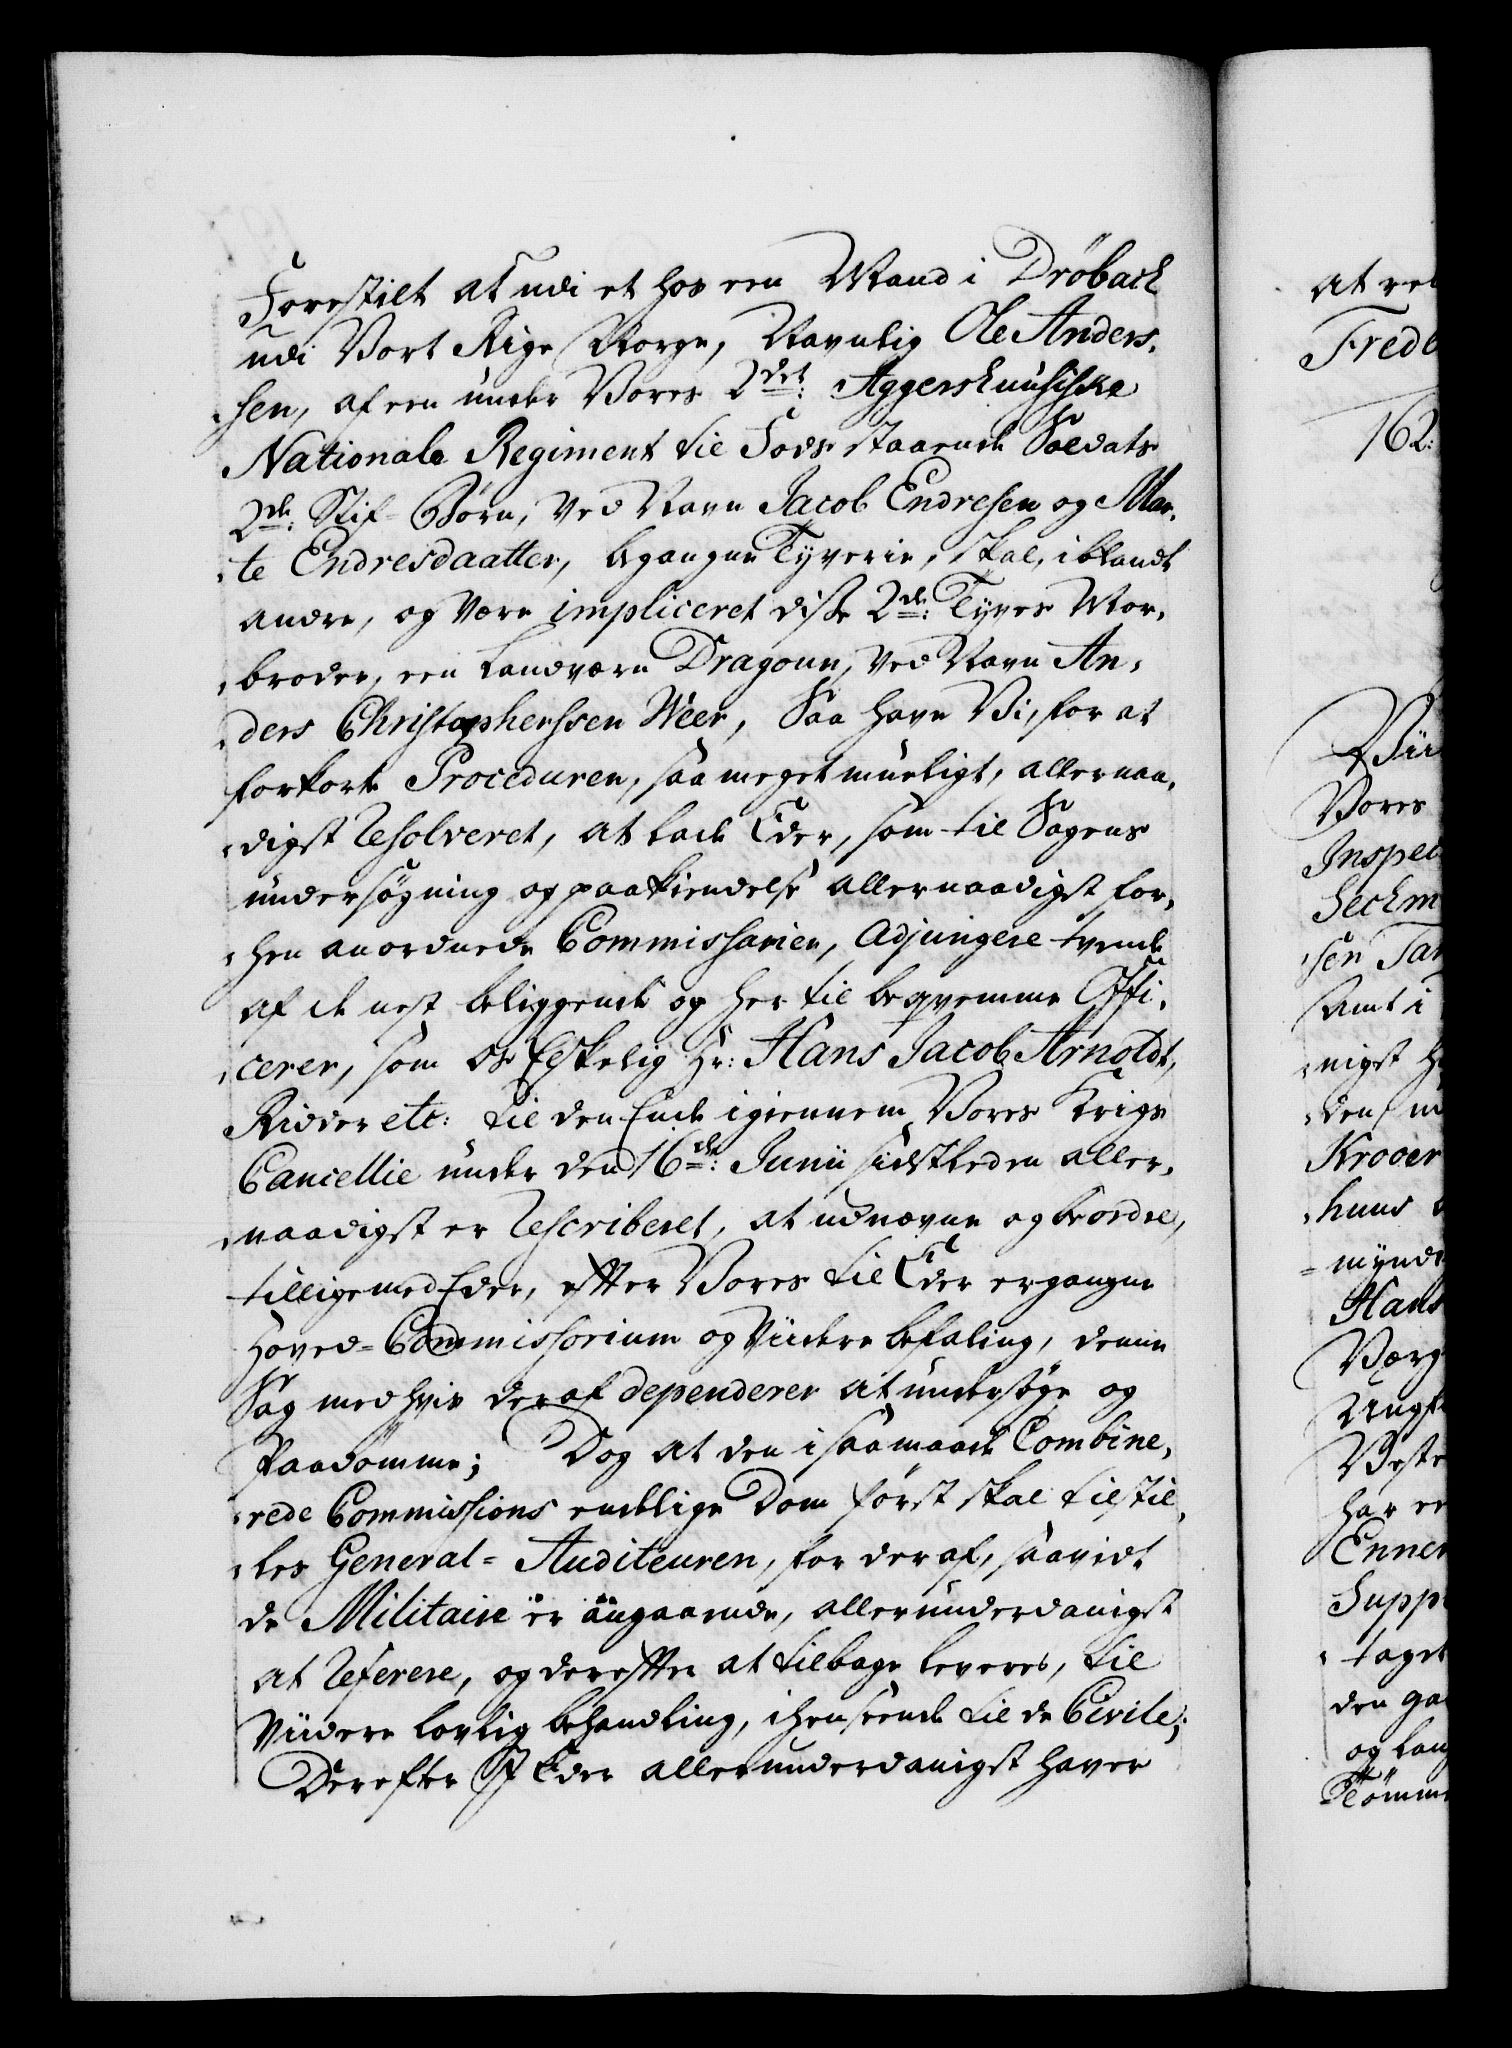 Forestilt at udi et hos een Mand i Dröbach
udi Vort Rige Norge, Navnlig Ole Anders-
sen, af een under Vores 2det: Aggershuusiske
Nationale Regiment til Fods staaende Soldats
2de: Stif-Börn, ved Navn Jacob Endresen og Mar-
te Endresdaatter, begangne Tyverie, skal, iblandt
andre, og være impliceret disse 2de: Tyves Mor-
broder, een Landværn Dragoun, ved Navn An-
ders Christophersen Weer, Saa have Vi, for at
forkorte Proceduren, saa meget mueligt, allernaa-
digst Resolveret, at lade Eder, som til Sagens
undersögning og paakiendelse allernaadigst for-
hen anordnede Commissarier, Adjungere tvende
af de nest beliggende og her til beqvemme Offi-
cerer, som Os Elskelig Hr: Hans Jacob Arnoldt,
Ridder etc: til den Ende igiennem Vores Krigs
Cancellie under den 16de: Junii sidstleden aller-
naadigst er Rescriberet, at udnævne og beordre,
tilligemed Eder, efter Vores til Eder ergangne
Hoved-Commissorium og Viidere befaling, denne
Sag med hvis deraf dependerer at undersöge og
Paadömme; Dog at den i saa maade Combine-
rede Commissions endelige Dom först skal tilstil-
les General-Auditeuren, for deraf, saavidt
de Militaire er angaaende, allerunderdanigst
at Referere, og derefter at tilbage leveres, til
Viidere lovlig behandling, i henseende til de Civile;
Derefter I Eder allerunderdanigst haver
at ret
Fredb
162:
Vores
Inspec
Seckm
sen Tar
Samt i
nigst H
den
Krooer
huus
mynd
Hans
Værg
Ungf
Veste
har er
Ennen
Supp
taget
den ga
og lang
Tömm